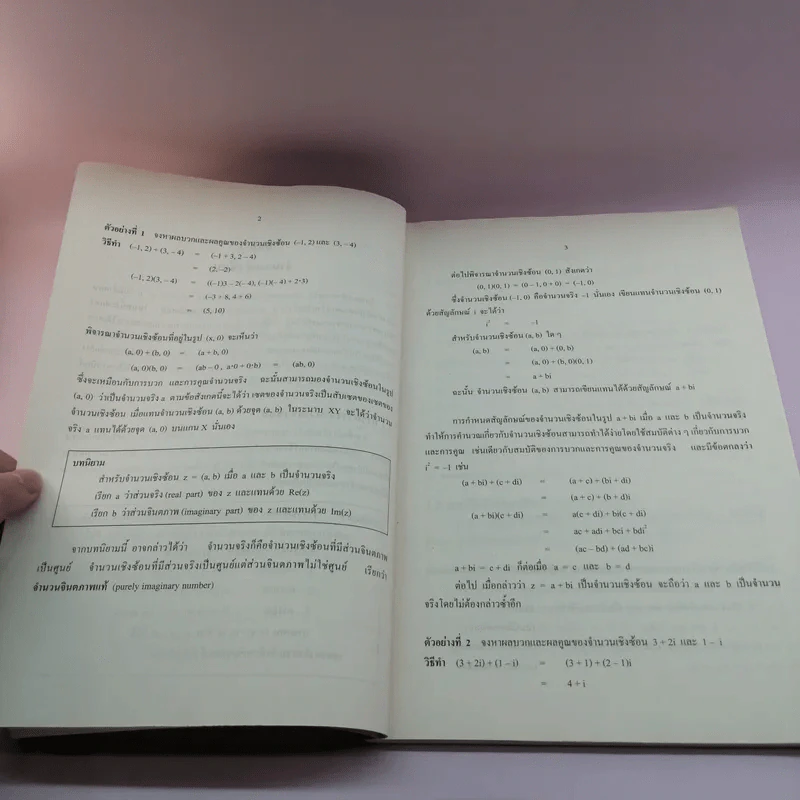 2
ตัวอย่างที่ 1 จงหาผลบวกและผลคูณของจำนวนเชิงซ้อน (–1, 2) และ (3, –4)
วิธีทำ (–1, 2) + (3, –4) = (–1 + 3, 2 – 4)
= (2, –2)
(–1, 2)(3, –4) = ((–1)3 – 2(–4), (–1)(–4) + 2·3)
= (–3 + 8, 4 + 6)
= (5, 10)
พิจารณาจำนวนเชิงซ้อนที่อยู่ในรูป (x, 0) จะเห็นว่า
(a, 0) + (b, 0) = (a + b, 0)
(a, 0)(b, 0) = (ab – 0, a·0 + 0·b) = (ab, 0)
ซึ่งจะเหมือนกับการบวก และการคูณจำนวนจริง ฉะนั้นสามารถมองจำนวนเชิงซ้อนในรูป
(a, 0) ว่าเป็นจำนวนจริง a ตามข้อสังเกตนี้จะได้ว่า เซตของจำนวนจริงเป็นสับเซตของเซตของ
จำนวนเชิงซ้อน เมื่อแทนจำนวนเชิงซ้อน (a, b) ด้วยจุด (a, b) ในระนาบ XY จะได้ว่าจำนวน
จริง a แทนได้ด้วยจุด (a, 0) บนแกน X นั่นเอง
บทนิยาม
สำหรับจำนวนเชิงซ้อน z = (a, b) เมื่อ a และ b เป็นจำนวนจริง
เรียก a ว่าส่วนจริง (real part) ของ z และแทนด้วย Re(z)
เรียก b ว่าส่วนจินตภาพ (imaginary part) ของ z และแทนด้วย Im(z)
จากบทนิยามนี้ อาจกล่าวได้ว่า จำนวนจริงก็คือจำนวนเชิงซ้อนที่มีส่วนจินตภาพ
เป็นศูนย์ จำนวนเชิงซ้อนที่มีส่วนจริงเป็นศูนย์แต่ส่วนจินตภาพไม่ใช่ศูนย์ เรียกว่า
จำนวนจินตภาพแท้ (purely imaginary number)
3
ต่อไปพิจารณาจำนวนเชิงซ้อน (0, 1) สังเกตว่า
(0, 1)(0, 1) = (0 – 1, 0 + 0) = (–1, 0)
ซึ่งจำนวนเชิงซ้อน (–1, 0) คือจำนวนจริง –1 นั่นเอง เขียนแทนจำนวนเชิงซ้อน (0, 1)
ด้วยสัญลักษณ์ i จะได้ว่า
i² = –1
สำหรับจำนวนเชิงซ้อน (a, b) ใด ๆ
(a, b) = (a, 0) + (0, b)
= (a, 0) + (b, 0)(0, 1)
= a + bi
ฉะนั้น จำนวนเชิงซ้อน (a, b) สามารถเขียนแทนได้ด้วยสัญลักษณ์ a + bi
การกำหนดสัญลักษณ์ของจำนวนเชิงซ้อนในรูป a + bi เมื่อ a และ b เป็นจำนวนจริง
ทำให้การคำนวณเกี่ยวกับจำนวนเชิงซ้อนสามารถทำได้ง่ายโดยใช้สมบัติต่าง ๆ เกี่ยวกับการบวก
และการคูณ เช่นเดียวกับสมบัติของการบวกและการคูณของจำนวนจริง และมีข้อตกลงว่า
i² = –1 เช่น
(a + bi) + (c + di) = (a + c) + (bi + di)
= (a + c) + (b + d)i
(a + bi)(c + di) = a(c + di) + bi(c + di)
= ac + adi + bci + bdi²
= (ac – bd) + (ad + bc)i
a + bi = c + di ก็ต่อเมื่อ a = c และ b = d
ต่อไป เมื่อกล่าวว่า z = a + bi เป็นจำนวนเชิงซ้อน จะถือว่า a และ b เป็นจำนวน
จริงโดยไม่ต้องกล่าวซ้ำอีก
ตัวอย่างที่ 2 จงหาผลบวกและผลคูณของจำนวนเชิงซ้อน 3 + 2i และ 1 – i
วิธีทำ (3 + 2i) + (1 – i) = (3 + 1) + (2 – 1)i
= 4 + i